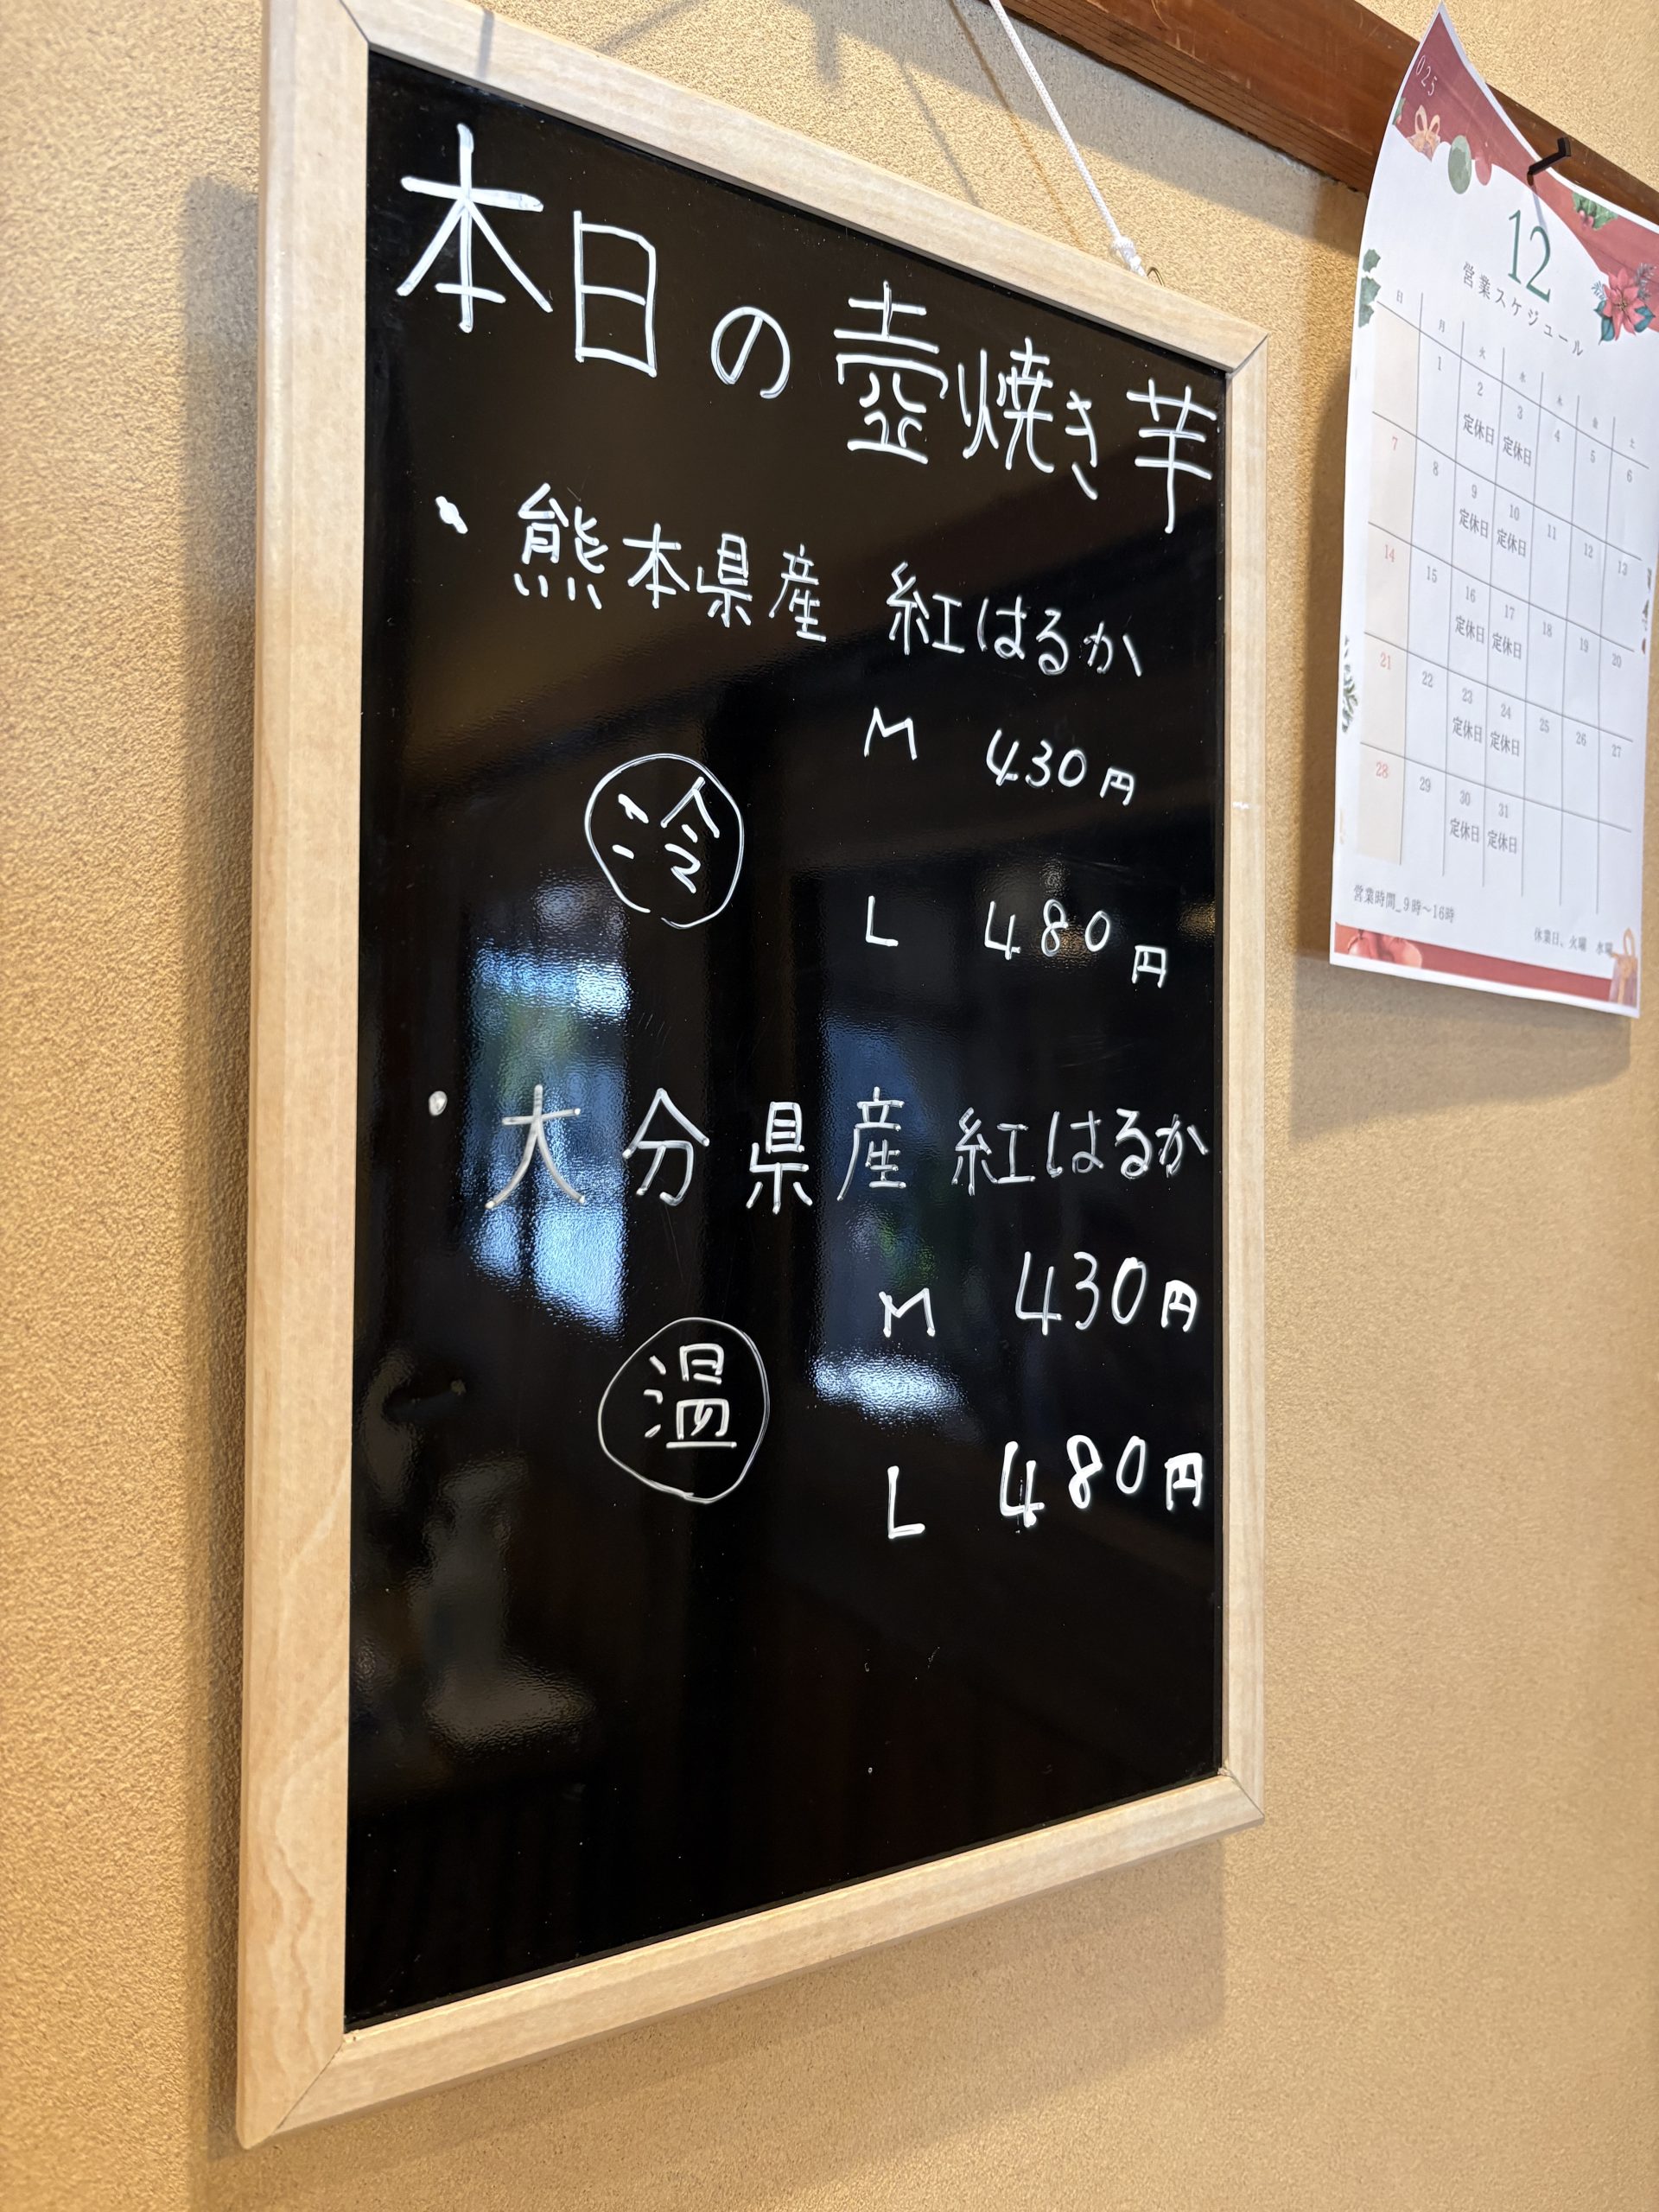 本日の壺焼き芋
・熊本県産 紅はるか
M 430円
冷
L 480円
・大分県産 紅はるか
M 430円
温
L 480円
025
12
営業スケジュール
日 月 火 水 木 金 土
1 2 3 4 5 6
定休日 定休日
7 8 9 10 11 12 13
定休日 定休日
14 15 16 17 18 19 20
定休日 定休日
21 22 23 24 25 26 27
定休日 定休日
28 29 30 31
定休日 定休日
営業時間_9時〜16時
休業日、火曜 水曜